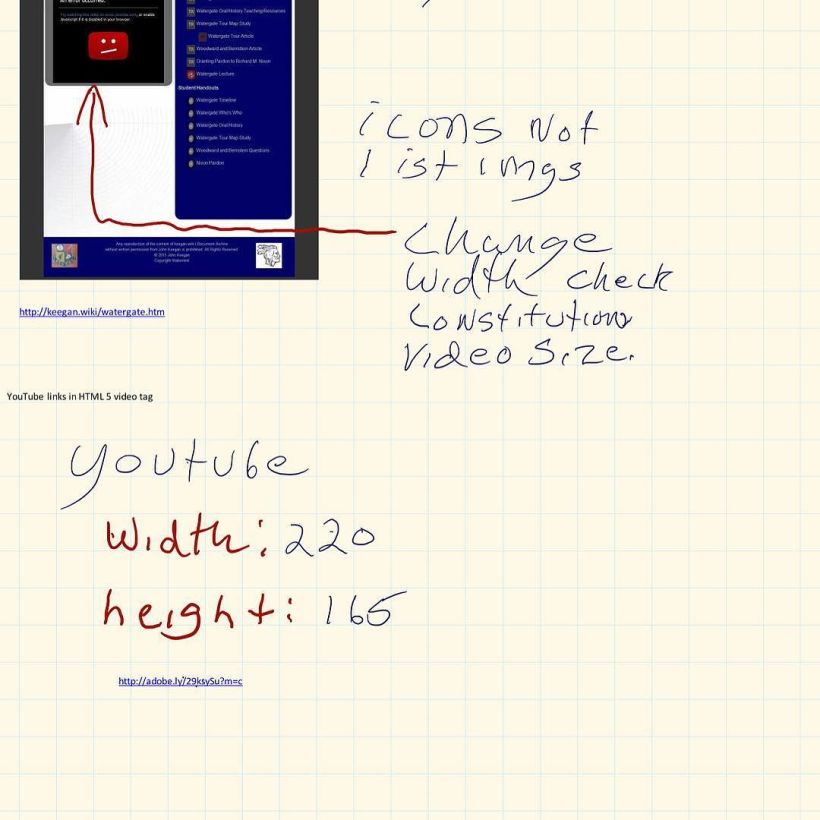 an error occurred.
or enable
JavaScript if it is disabled in your browser.
Watergate Oral History Teaching Resources
Watergate Tour Map Study
Watergate Tour Article
Woodward and Bernstein Article
Granting Pardon to Richard M. Nixon
Watergate Lecture
Student Handouts
Watergate Timeline
Watergate Who's Who
Watergate Oral History
Watergate Tour Map Study
Woodward and Bernstein Questions
Nixon Pardon
icons Not
listings
Change
Width check
Constitution
Video Size.
Any reproduction of the content of keegan.wiki Document Archive
without written permission from John Keegan is prohibited. All Rights Reserved
© 2015 John Keegan
Copyright Watermark
http://keegan.wiki/watergate.htm
YouTube links in HTML 5 video tag
youtube
Width: 220
height: 165
http://adobe.ly/29ksySu?m=c